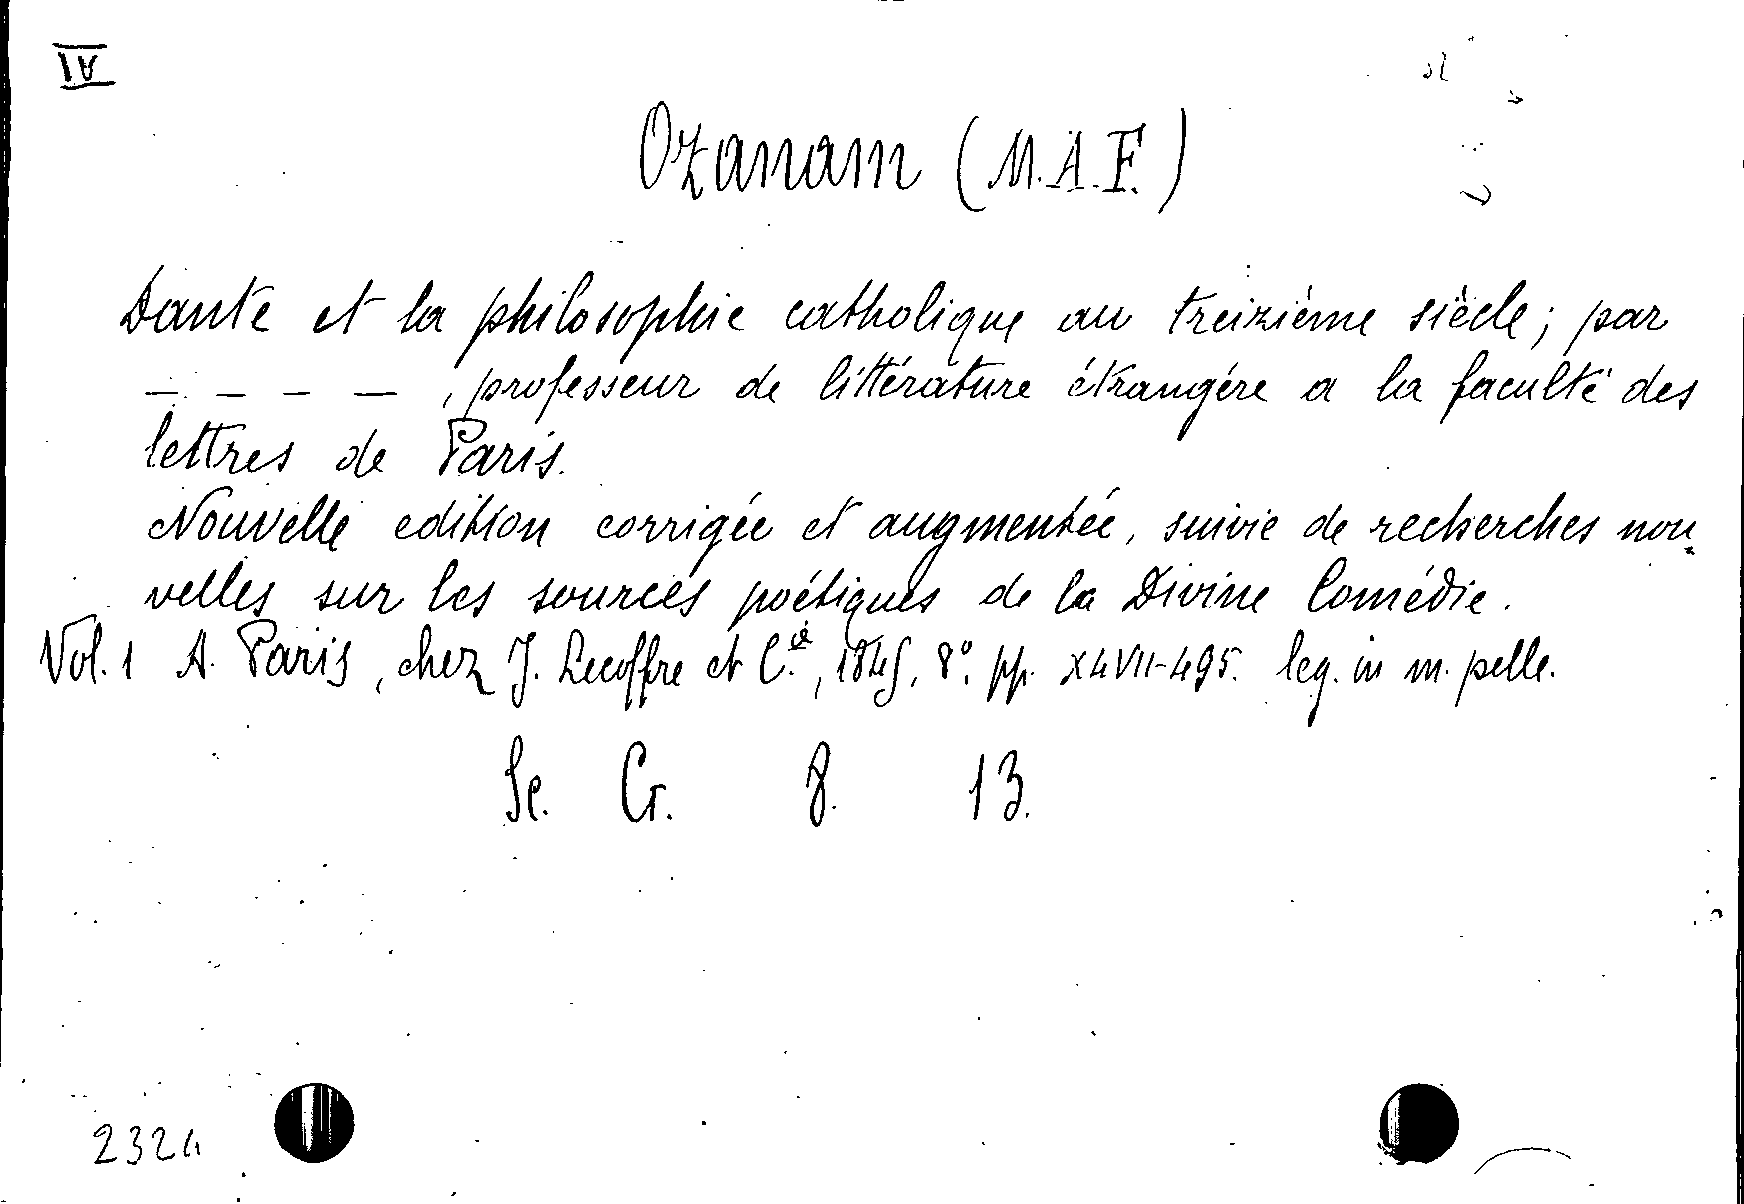 IV
Ozanam (M.A.F.)
Dante et la philosophie catholique au treizième siècle; par
_ _ _ _ , professeur de littérature étrangère a la faculté des
lettres de Paris.
Nouvelle edition corrigée et augmentée, suivie de recherches nou-
velles sur les sources poétiques de la Divine Comédie.
Vol. 1 A. Paris, chez J. Lecoffre et C.ie, 1845, 8°. pp. XLVII-495. leg. in m. pelle.
Sc. Cr. 8. 13.
2324